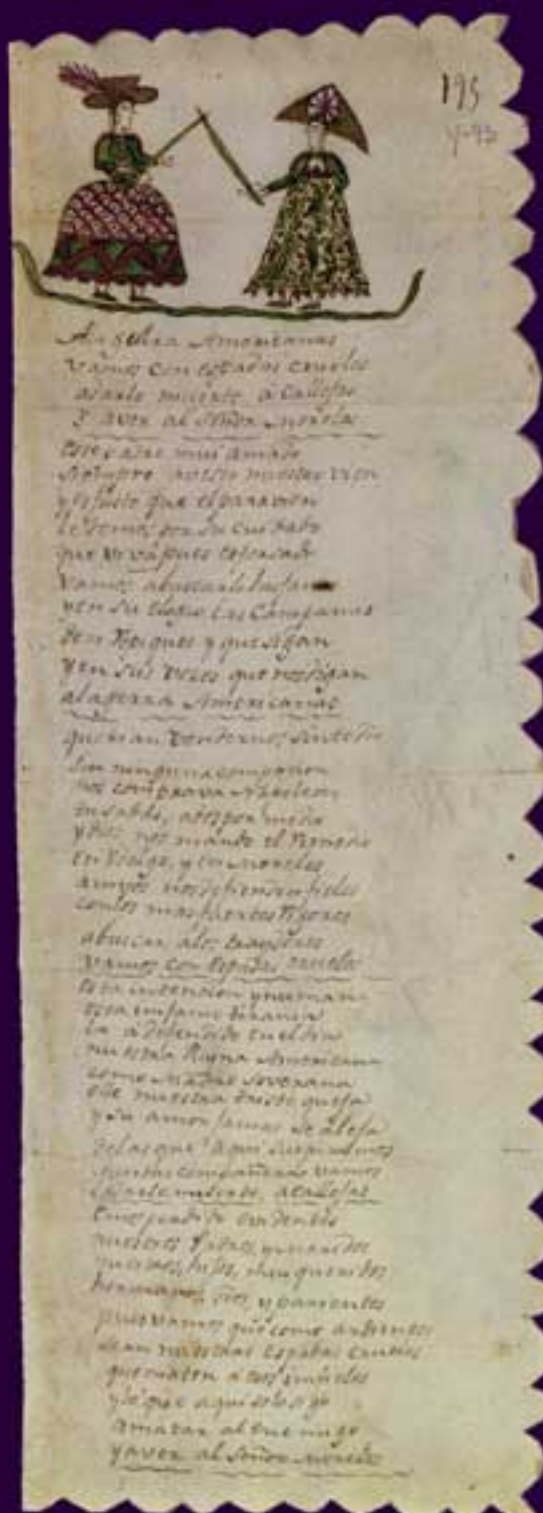 195
Y-93
A la guerra Americanas
vamos con espadas crueles
a darle muerte, a Callejas
Y aver al Señor Morelos
muy amado
siempre nuestro
y es justo que el paravien
le demos por su cuidado
que
vamos
y en su elogio las Campanas
den Repiques y que sigan
y en sus voces que nos digan
a la gerra Americanas
querian Vendernos
sin ninguna compacion
nos comprava Napoleon
medio
y Dios nos mando el Remedio
en y en Morelos
amvos nos defienden fieles
con los mas fuertes Rigores
abuscar alos traydores
Vamos con Espadas crueles
esta intencion ynumana
esta tirania
la a defendido
nuestra Reyna Americana
como Madre Soverana
oye nuestra triste queja
y su amor jamas se aleja
delas que aqui suspiramos
juntas compañeras vamos
adarle muerte, acallejas
emos perdido
nuestros Padres, y maridos
hijos, queridos
hermanos, tios, y parientes
pues vamos que como ardientes
sean nuestras Espadas Crueles
que maten a
y lo que aqui solo digo
amatar al enemigo
y aver al Señor Morelos